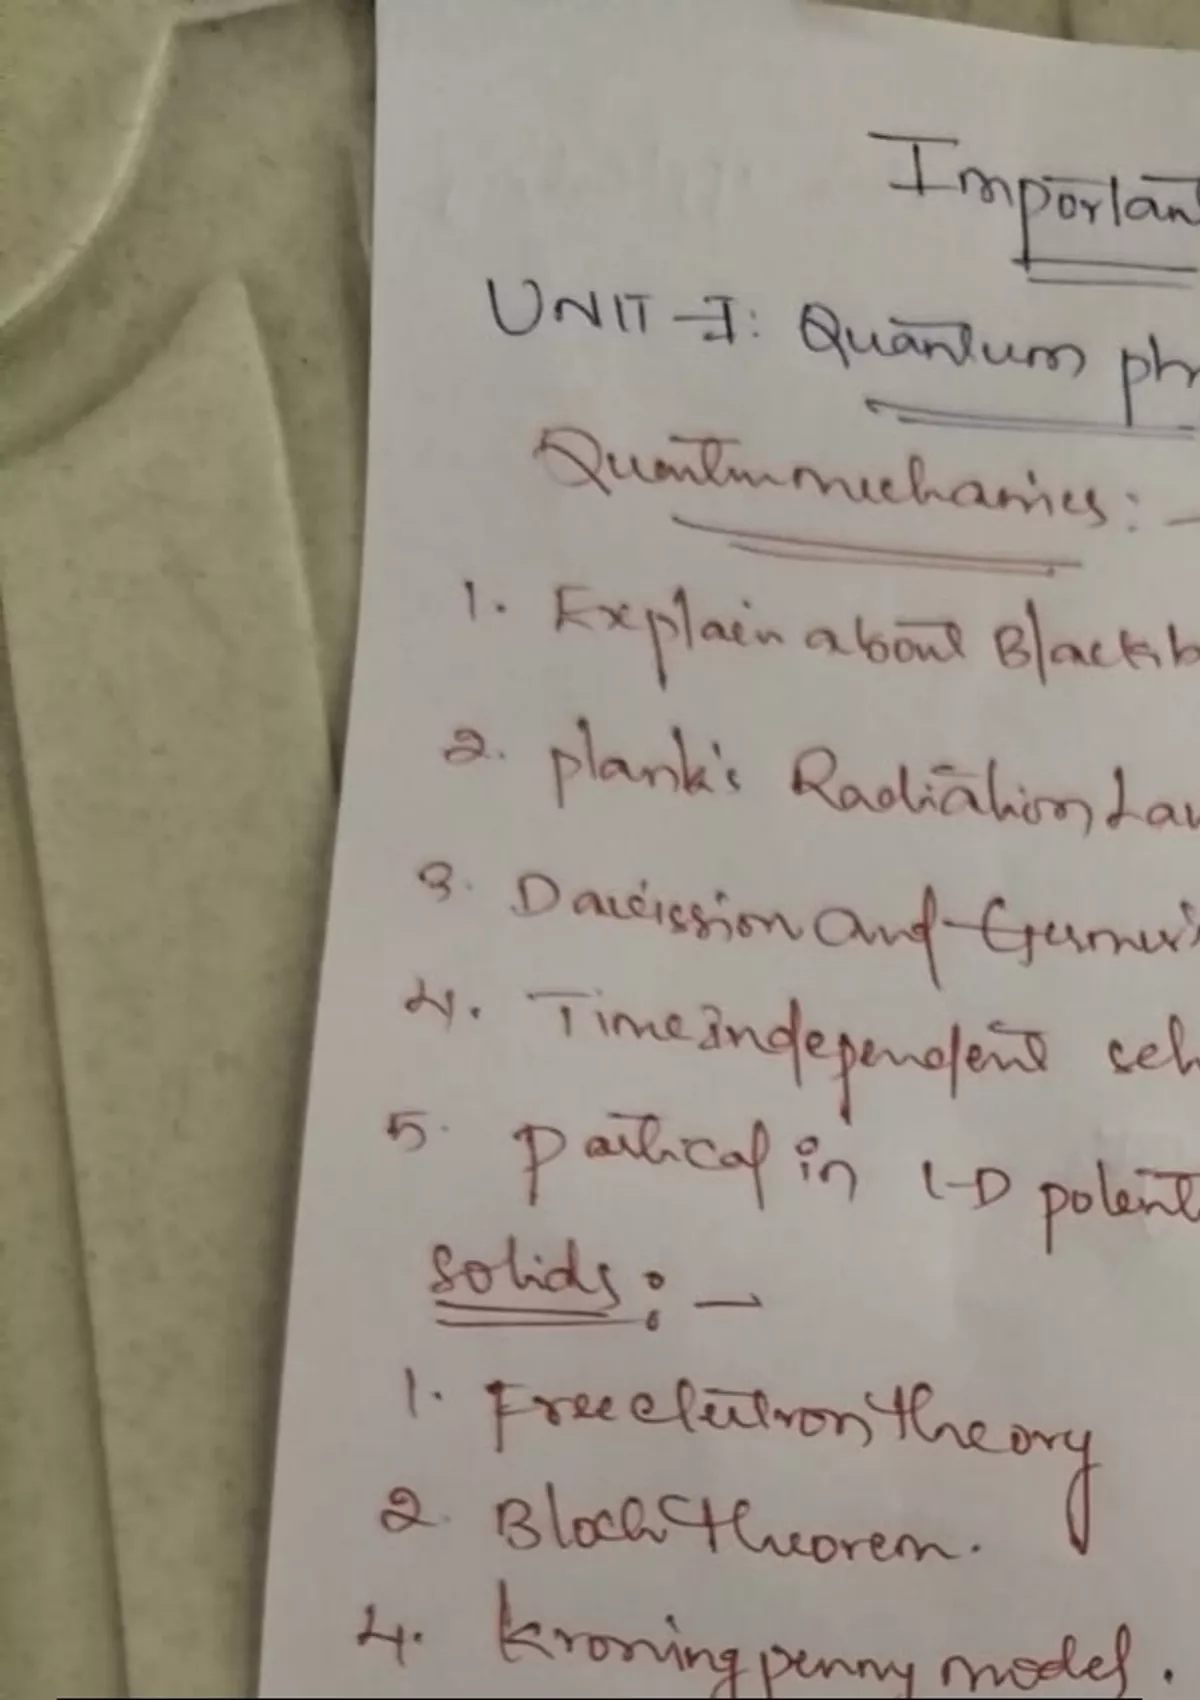 Important
UNIT-I: Quantum ph
Quantum mechanics:-
1. Explain about Black b
2. plank's Radiation Law
3. Davission and Germer's
4. Time independent sch
5. partical in 1-D potent
solids:-
1. Free electron theory
2. Bloch theorem.
4. kroning penny model.